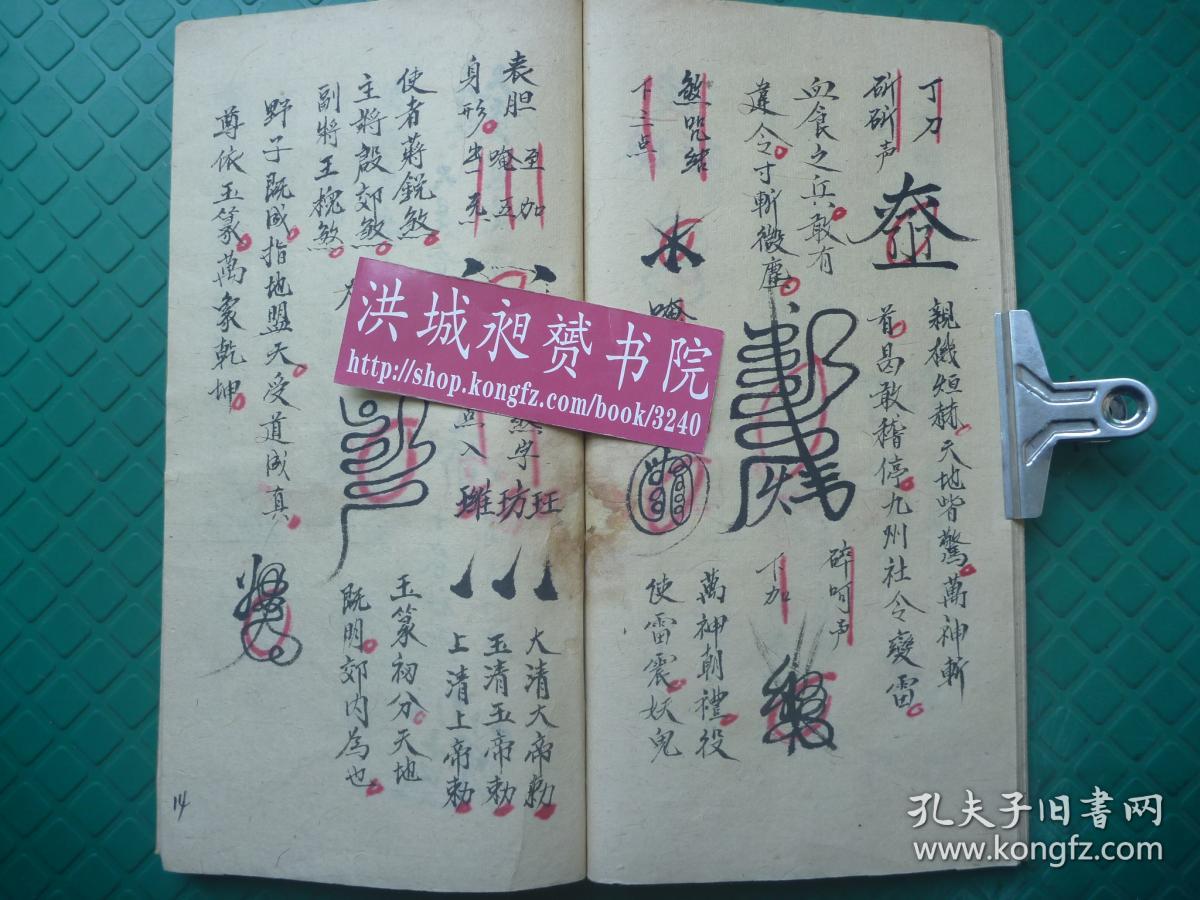 丁刀
斫斫声
親機短赫天地皆驚萬神斬
首曷敢稽停九州社令變雷
血食之兵敢有
違令寸斬微塵
碎呵声
下加
煞咒结
下三点
水
唵
萬神朝禮役
使雷震妖鬼
表胆
至加
身形
唵五
出
煞字
点入
玨
玤
大清大帝勅
玉清玉帝勅
上清上帝勅
使者蔣銳煞
主將殷郊煞
副將王槐煞
玉篆初分天地
既明郊内為也
野子既成指地盟天受道成真
尊依玉篆萬象乾坤
14
洪城昶赟书院
http://shop.kongfz.com/book/3240
孔夫子旧书网
www.kongfz.com